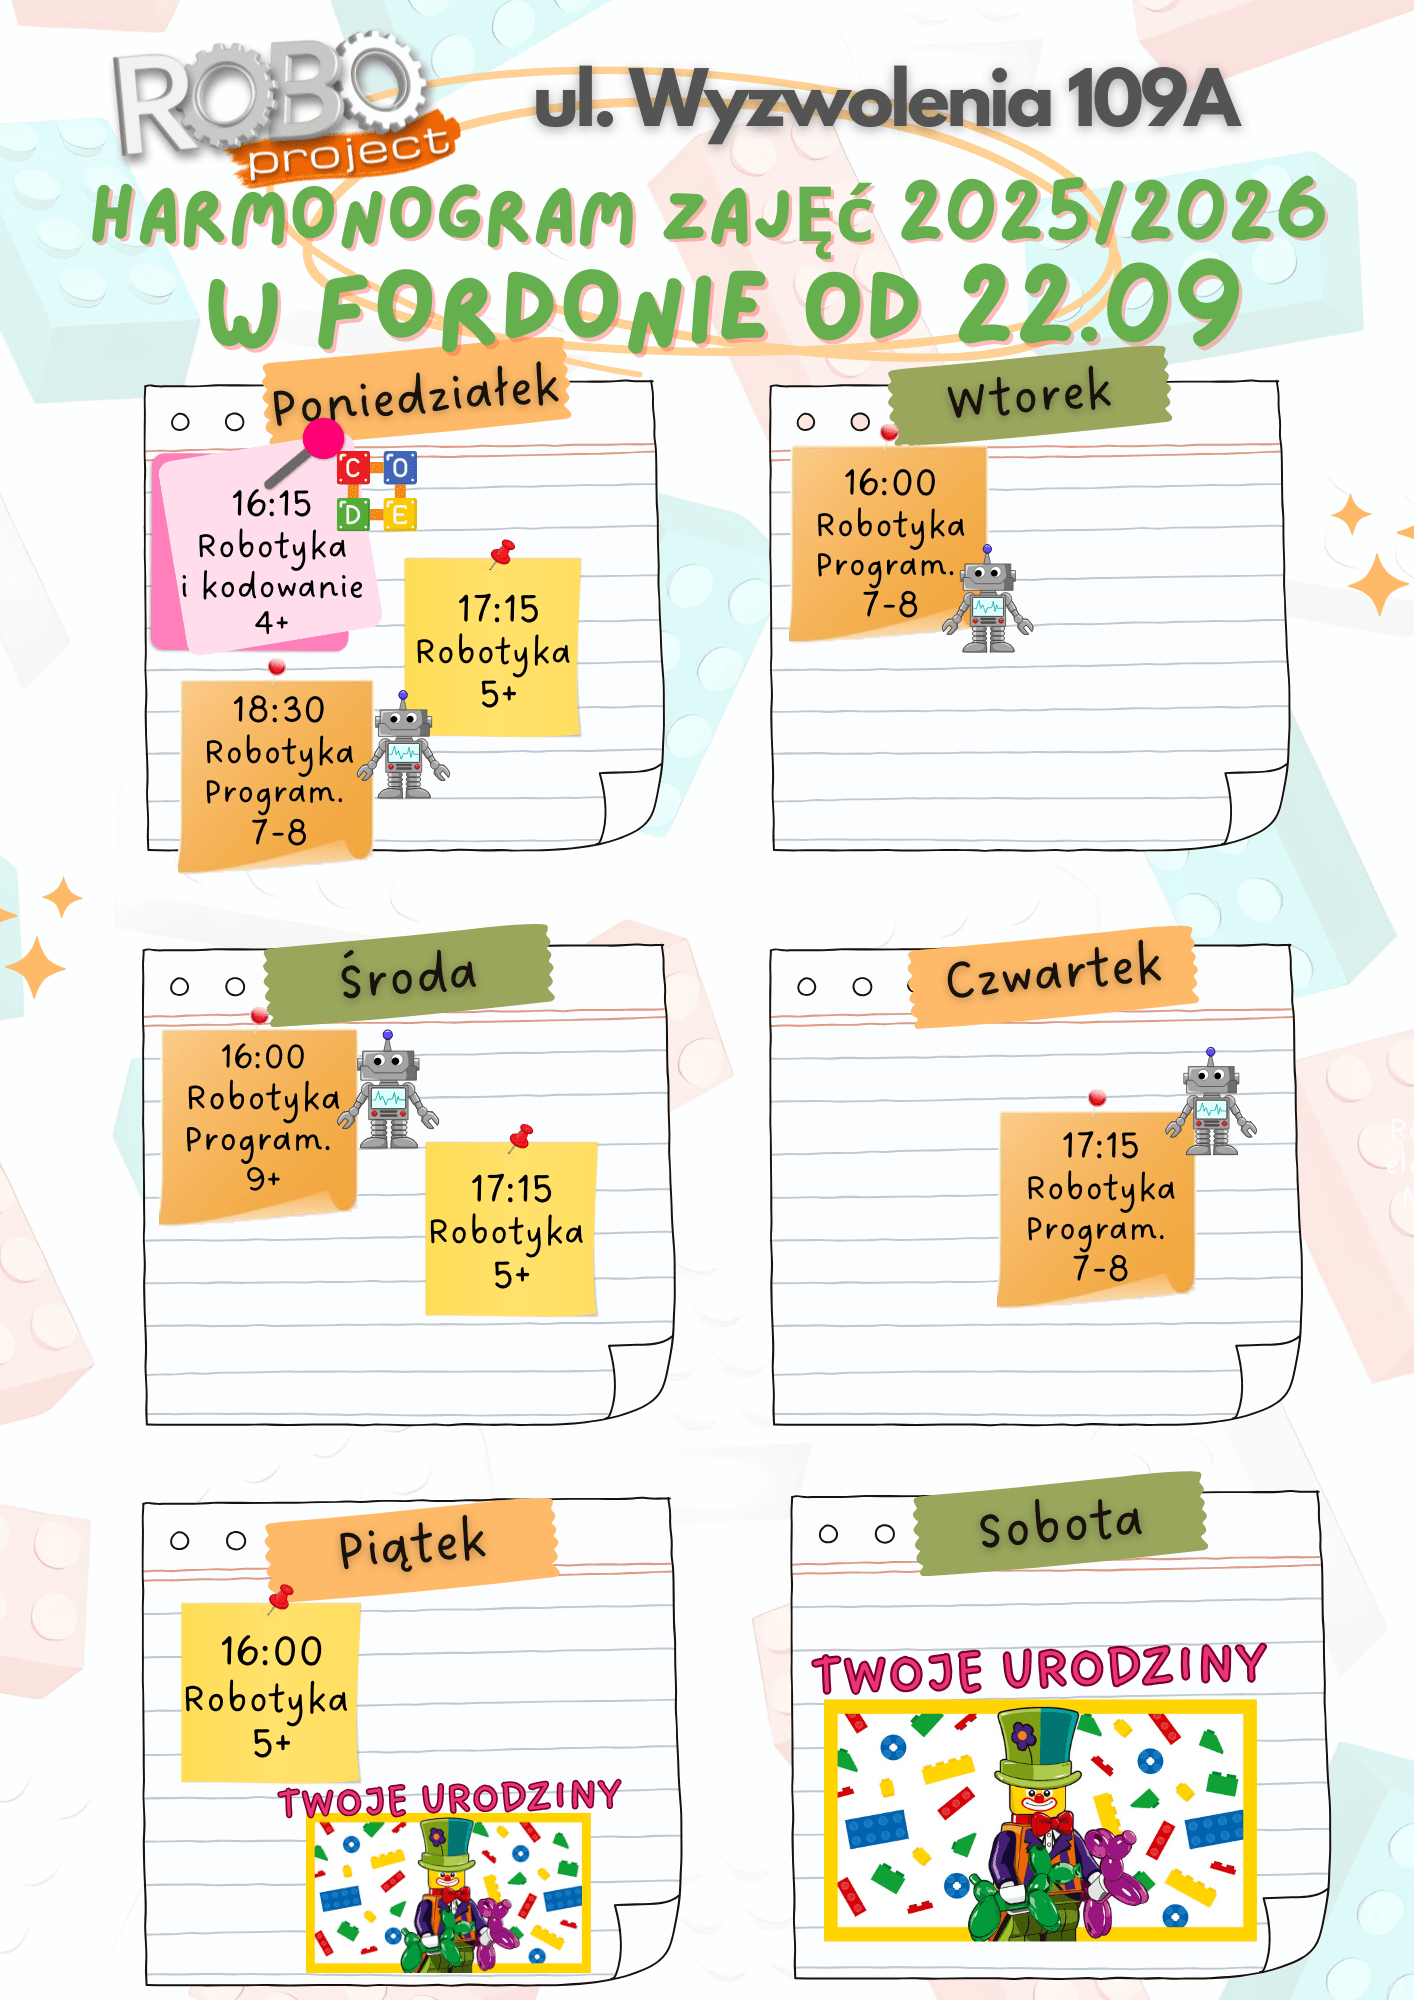 ROBO
project
ul. Wyzwolenia 109A
HARMONOGRAM ZAJĘĆ 2025/2026
W FORDONIE OD 22.09
Poniedziałek
16:15
Robotyka
i kodowanie
4+
C O
D E
17:15
Robotyka
5+
18:30
Robotyka
Program.
7-8
Wtorek
16:00
Robotyka
Program.
7-8
Środa
16:00
Robotyka
Program.
9+
17:15
Robotyka
5+
Czwartek
17:15
Robotyka
Program.
7-8
Piątek
16:00
Robotyka
5+
TWOJE URODZINY
Sobota
TWOJE URODZINY